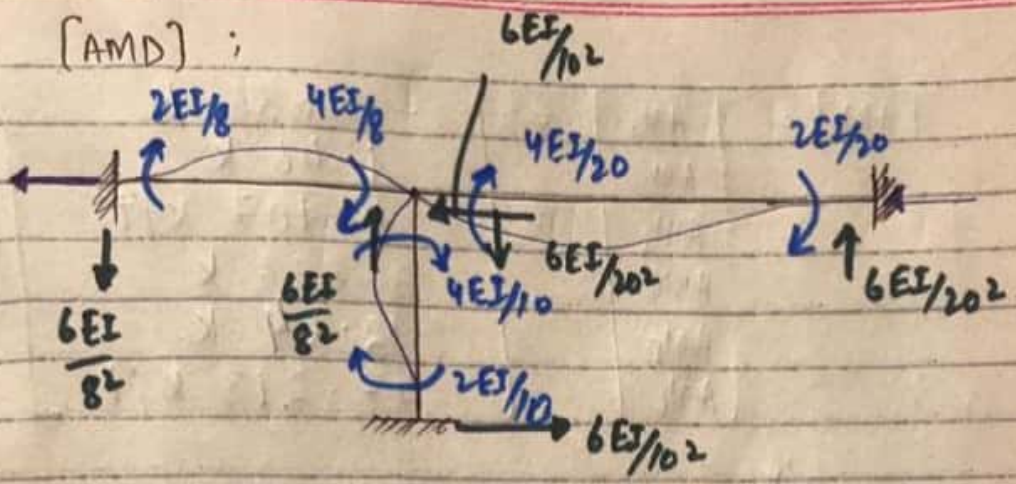 [AMD] ;
6EI/10²
2EI/8
4EI/8
4EI/20
2EI/20
6EI/20²
6EI/20²
4EI/10
6EI/8²
6EI/8²
2EI/10
6EI/10²